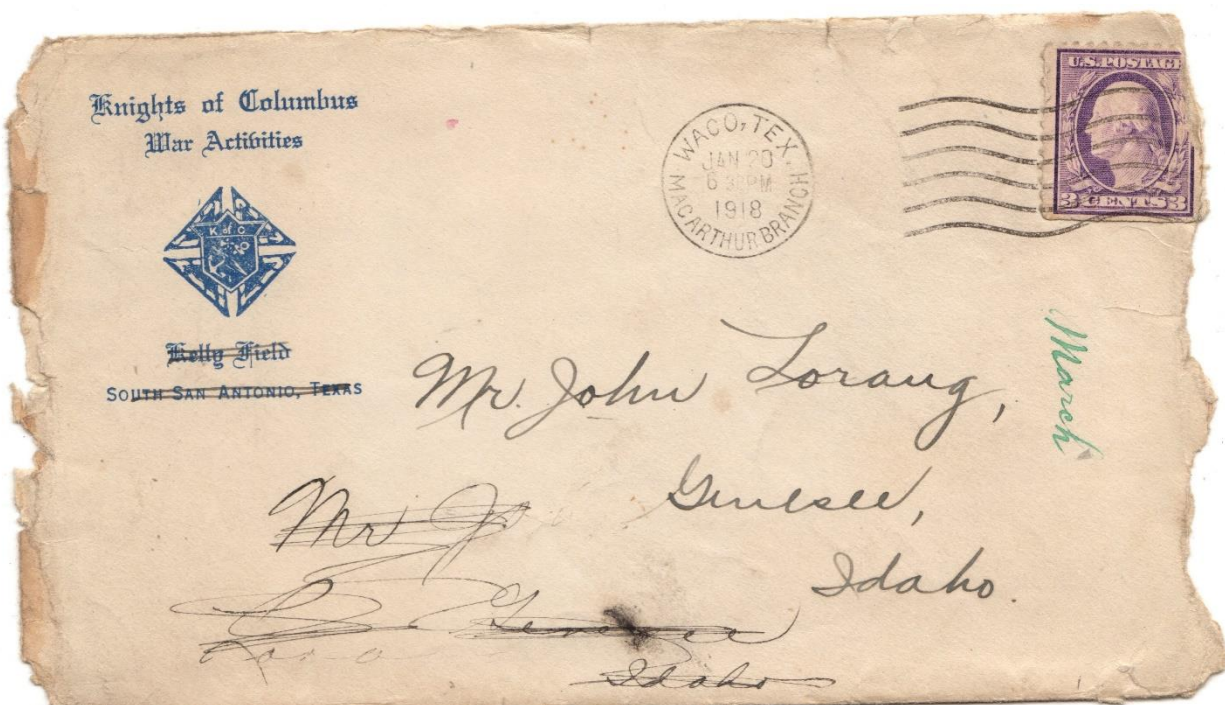 Knights of Columbus
War Activities
K of C
Kelly Field
SOUTH SAN ANTONIO, TEXAS
WACO, TEX.
JAN 20
6 30 PM
1918
MACARTHUR BRANCH
U.S. POSTAGE
3 CENTS 3
March
Mr. John Lorang,
Genesee,
Idaho.
Mr J
Genesee
Idaho